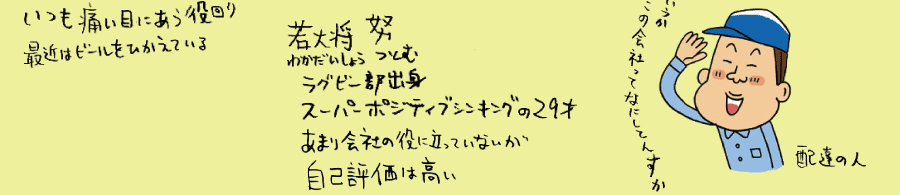 いつも痛い目にあう役回り
最近はビールをひかえている
若大将 努
わかだいしょう つとむ
ラグビー部出身
スーパーポジティブシンキングの29才
あまり会社の役に立っていないが
自己評価は高い
いうか
この会社ってなにしてんすか
配達の人